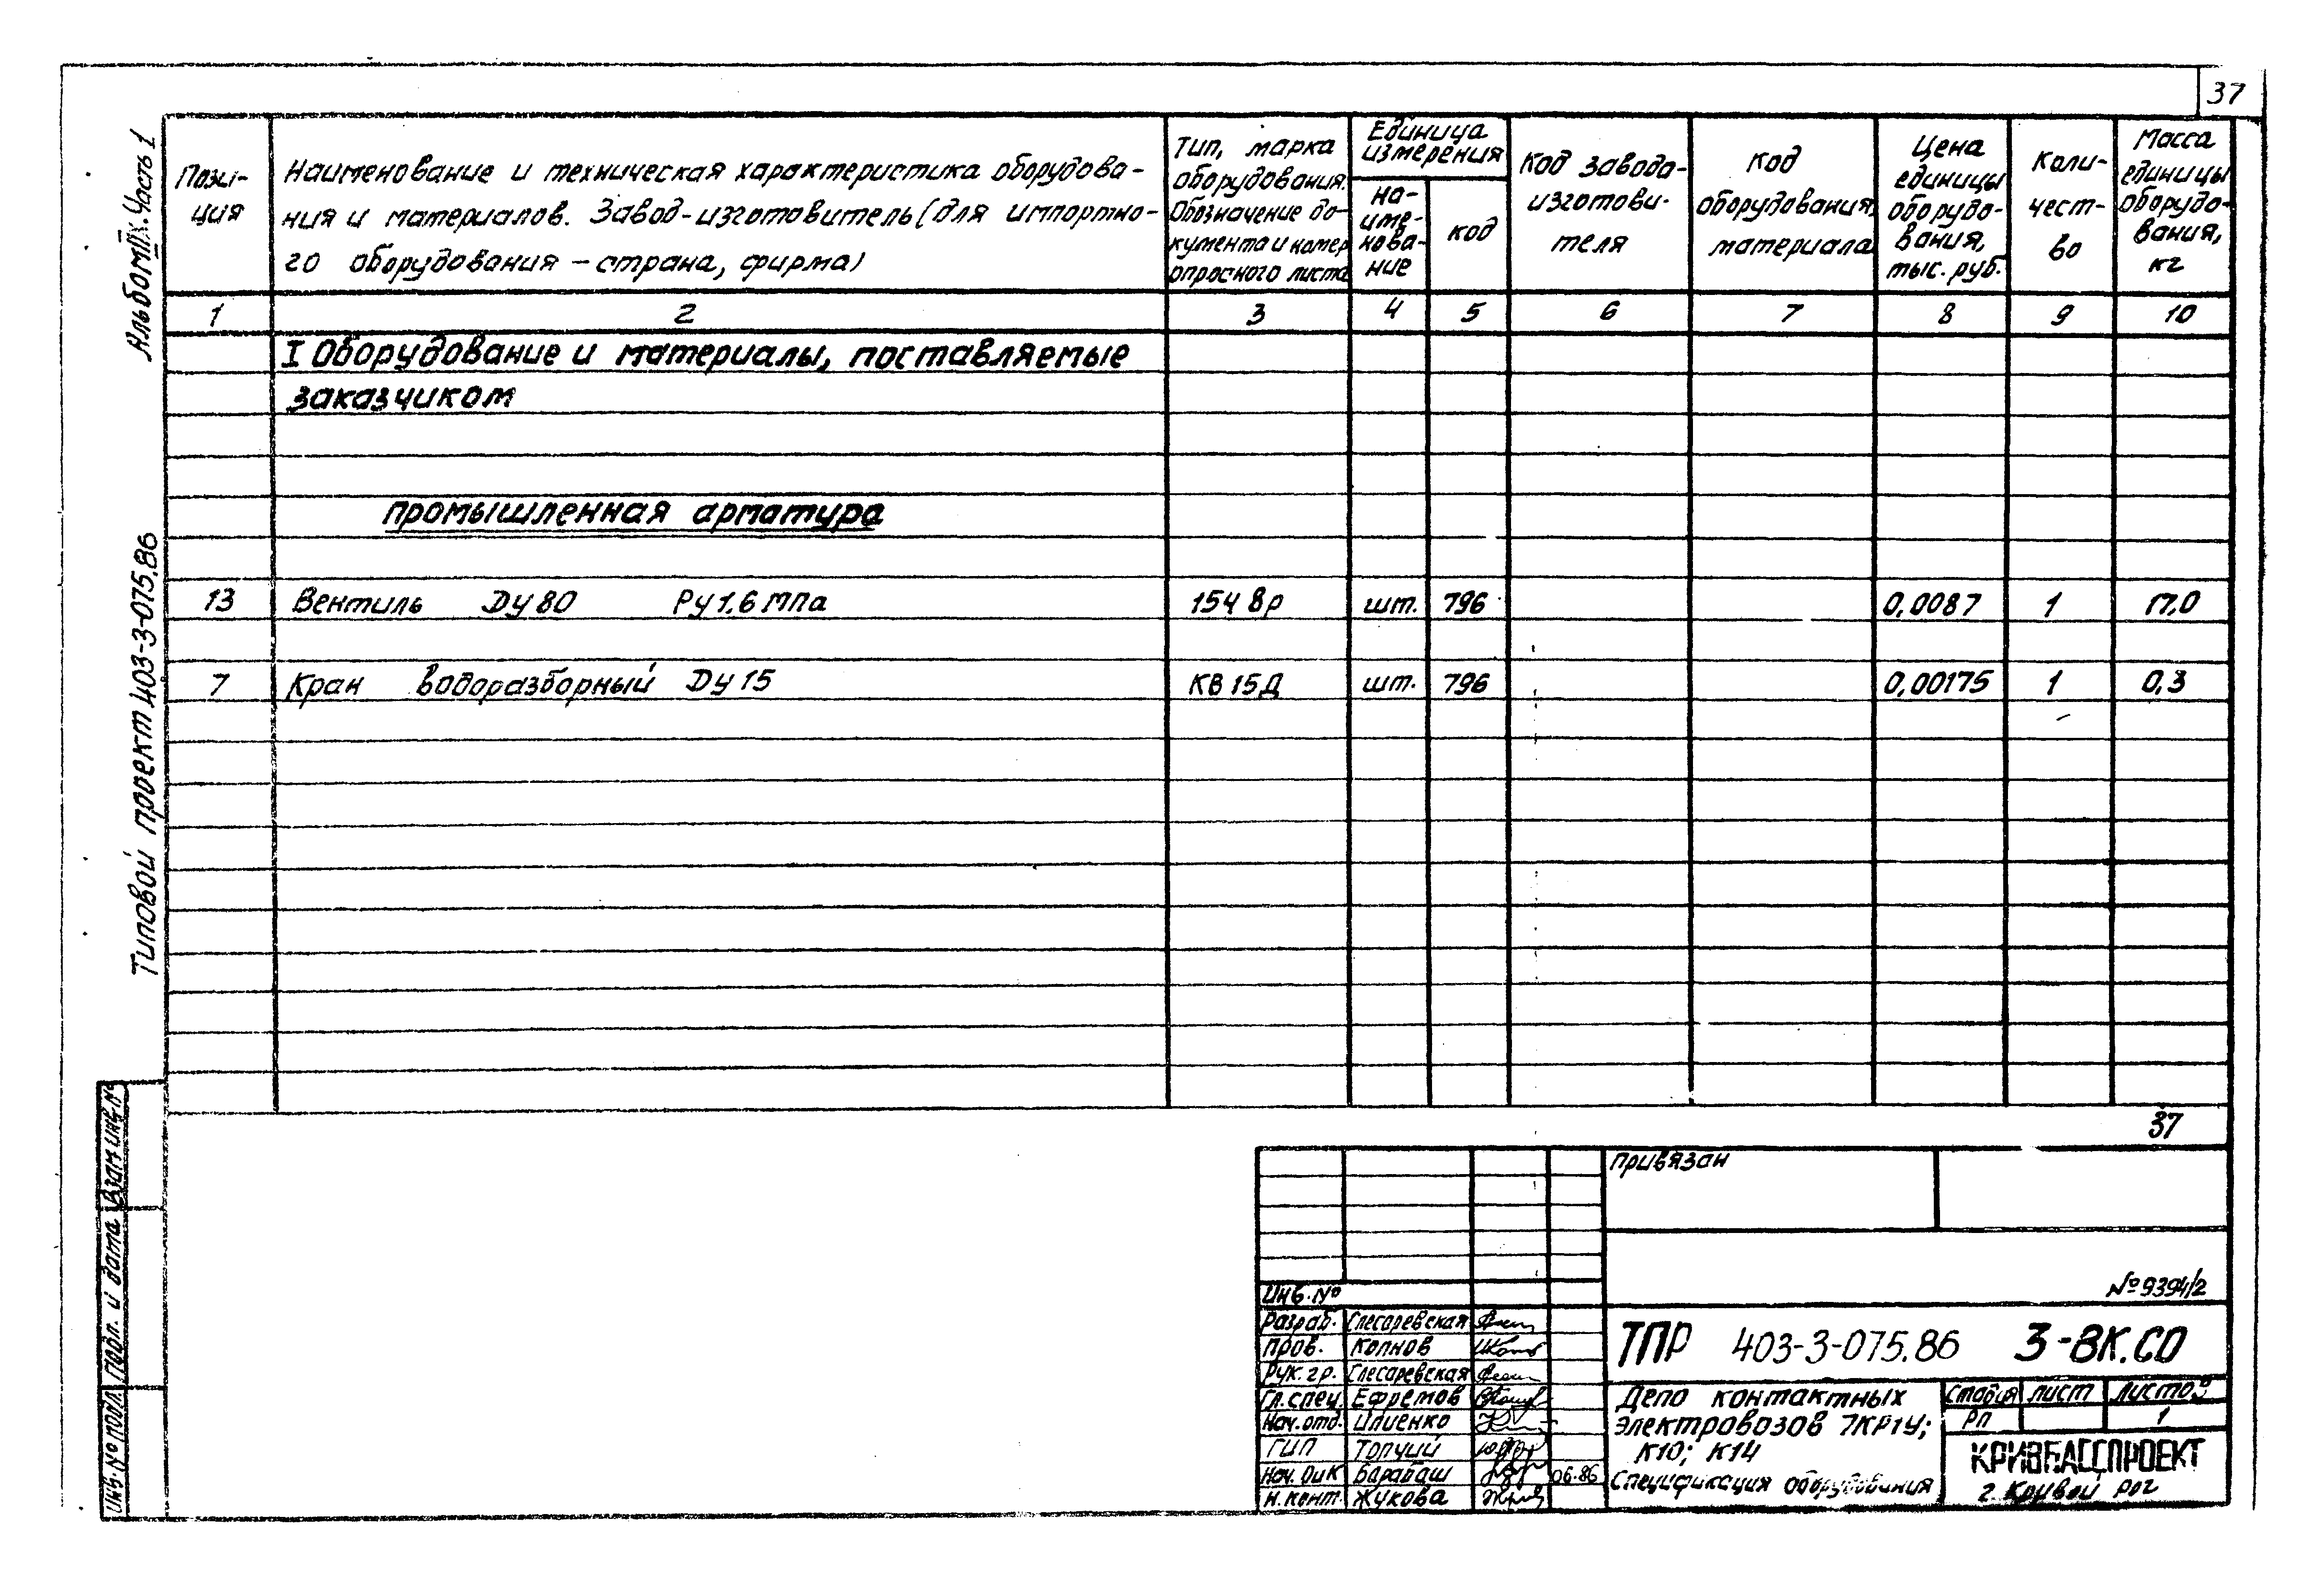 37
Альбом IX. Часть 1
Типовой проект 403-3-075.86
Пози-
ция
Наименование и техническая характеристика оборудова-
ния и материалов. Завод-изготовитель (для импортно-
го оборудования – страна, фирма)
Тип, марка
оборудования.
Обозначение до-
кумента и номер
опросного листа
Единица
измерения
на-
име-
нова-
ние
код
Код завода-
изготови-
теля
Код
оборудования,
материала
Цена
единицы
оборудо-
вания,
тыс. руб.
Коли-
чест-
во
Масса
единицы
оборудо-
вания,
кг
1 2 3 4 5 6 7 8 9 10
I Оборудование и материалы, поставляемые
заказчиком
Промышленная арматура
13 Вентиль Ду 80 Ру 1,6 МПа 15ч 8р шт. 796 0,0087 1 17,0
7 Кран водоразборный Ду 15 КВ 15Д шт. 796 0,00175 1 0,3
37
Взам инв №
Подп. и дата
Инв. № подл.
Привязан
Инв. №
№ 9394/2
Разраб. Слесаревская
Пров. Колнов
Рук. гр. Слесаревская
Гл. спец. Ефремов
Нач. отд.
ГИП Топчий
Нач. ОиК Барабаш 06.86
Н. конт. Жукова
ТПР 403-3-075.86 3-ВК.СО
Депо контактных
электровозов 7КР1У;
К10; К14
Спецификация оборудования
Стадия Лист Листов
РП 1
КРИВБАССПРОЕКТ
г. Кривой Рог